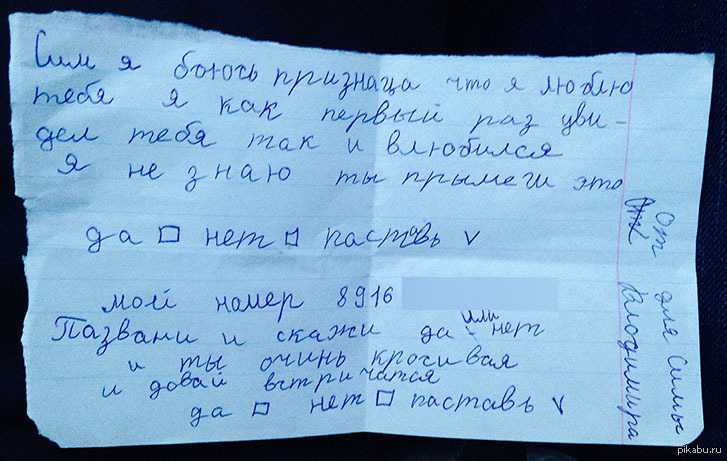 Сим я боюсь признаца что я люблю
тебя я как первый раз уви-
дел тебя так и влюбился
Я не знаю ты прымеш это
да □ нет □ паставь v
мой номер 8916
Пазвани и скажи да или нет
и ты очинь кросивая
и довай встричатся
да □ нет □ паставь v
От для Симы
От Влодимира
pikabu.ru